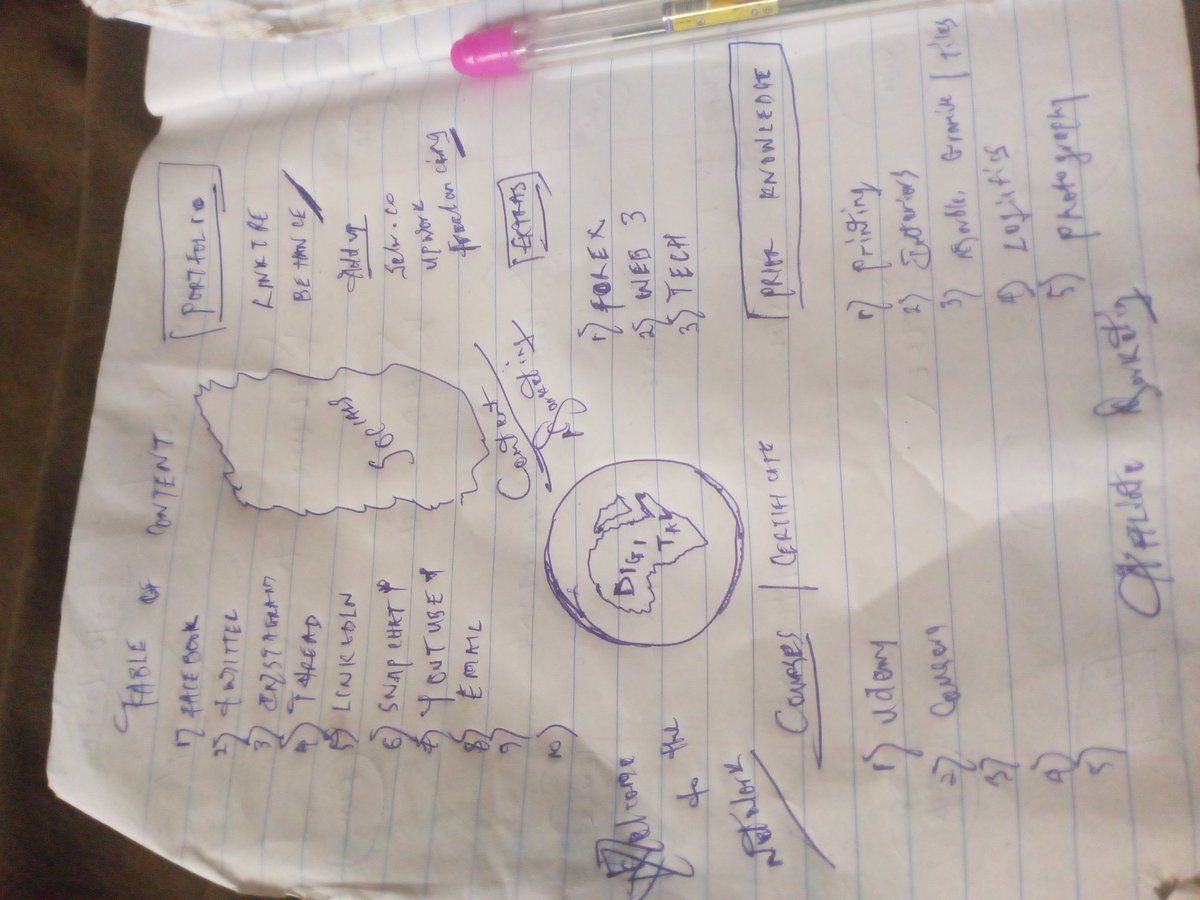 TABLE OF CONTENT
1) FACEBOOK
2) TWITTER
3) INSTAGRAM
4) THREAD
5) LINKEDLN
6) SNAPCHAT
7) YOUTUBE
8) EMAIL
9)
10)
SOCIALS
PORTFOLIO
LINKTRE
BEHANCE
Selar.co
UPWORK
Freelancing
Content
Marketing
EXTRAS
1) FOREX
2) WEB 3
3) TECH
DIGI
TAL
Welcome
to the
Network
Courses | CERTIFICATE
1) Udemy
2)
3)
4)
5)
PRIOR KNOWLEDGE
1) Printing
2) Interiors
3) Marble, Granite | Tiles
4) Logistics
5) Photography
Affiliate Marketing